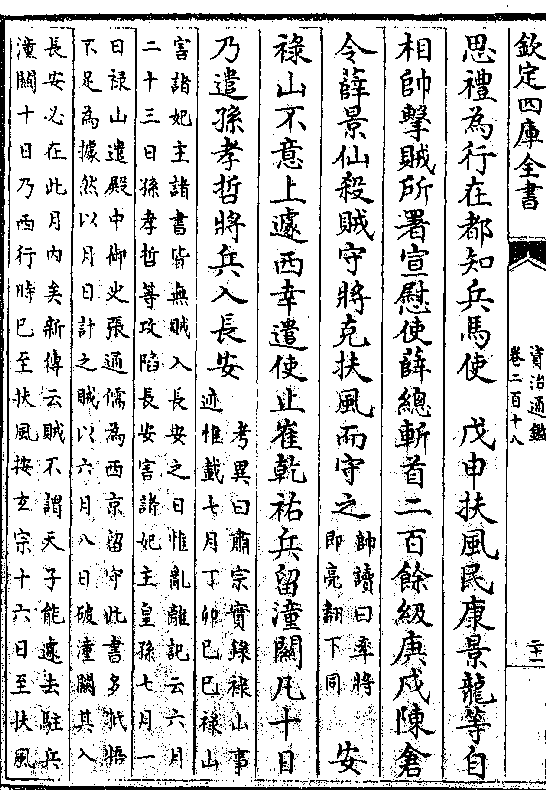 欽定四庫全書
資治通鑑
卷二百十八
二十二
思禮為行在都知兵馬使　戊申扶風民康景龍等自
相帥擊賊所署宣慰使薛總斬首二百餘級庚戌陳倉
令薛景仙殺賊守將克扶風而守之
帥讀曰率將
即亮翻下同
安
祿山不意上遽西幸遣使止崔乾祐兵留潼關凡十日
乃遣孫孝哲將兵入長安
考異曰肅宗實錄祿山事
迹惟載七月丁卯己巳祿山
害諸妃主諸書皆無賊入長安之日惟亂離記云六月
二十三日孫孝哲等攻陷長安害諸妃主皇孫七月一
日祿山遣殿中御史張通儒為西京留守此書多牴牾
不足為據然以月日計之賊以六月八日破潼關其入
長安必在此月内矣新傳云賊不謂天子能遽去駐兵
潼關十日乃西行時已至扶風按玄宗十六日至扶風